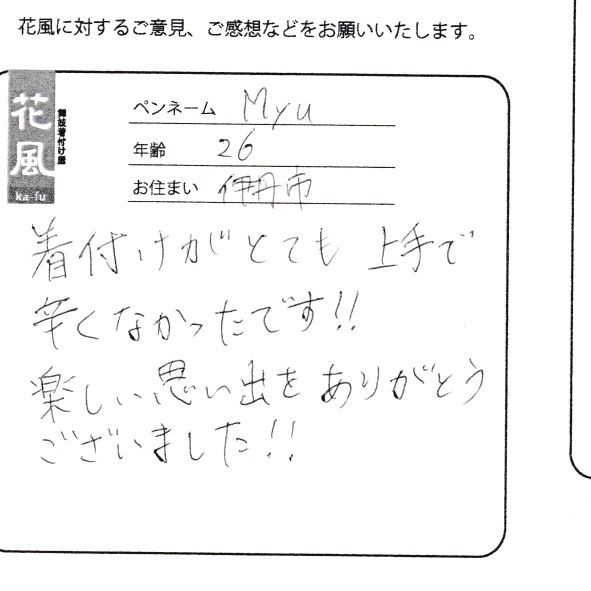 花風に対するご意見、ご感想などをお願いいたします。
花風
舞妓着付け屋
ka-fu
ペンネーム Myu
年齢 26
お住まい 伊丹市
着付けがとても上手で
辛くなかったです!!
楽しい思い出をありがとう
ございました!!